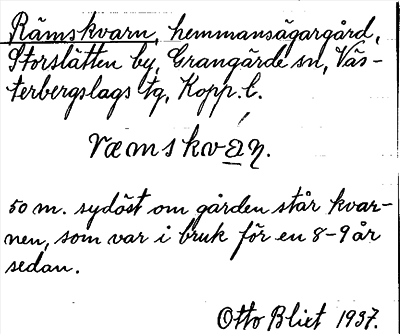 Rämskvarn, hemmansägargård,
Storslätten by, Grangärde sn, Väs-
terbergslags tg, Kopp. l.
ræmskván.
50 m. sydöst om gården står kvar-
nen, som var i bruk för en 8-9 år
sedan.
Otto Blixt 1937.